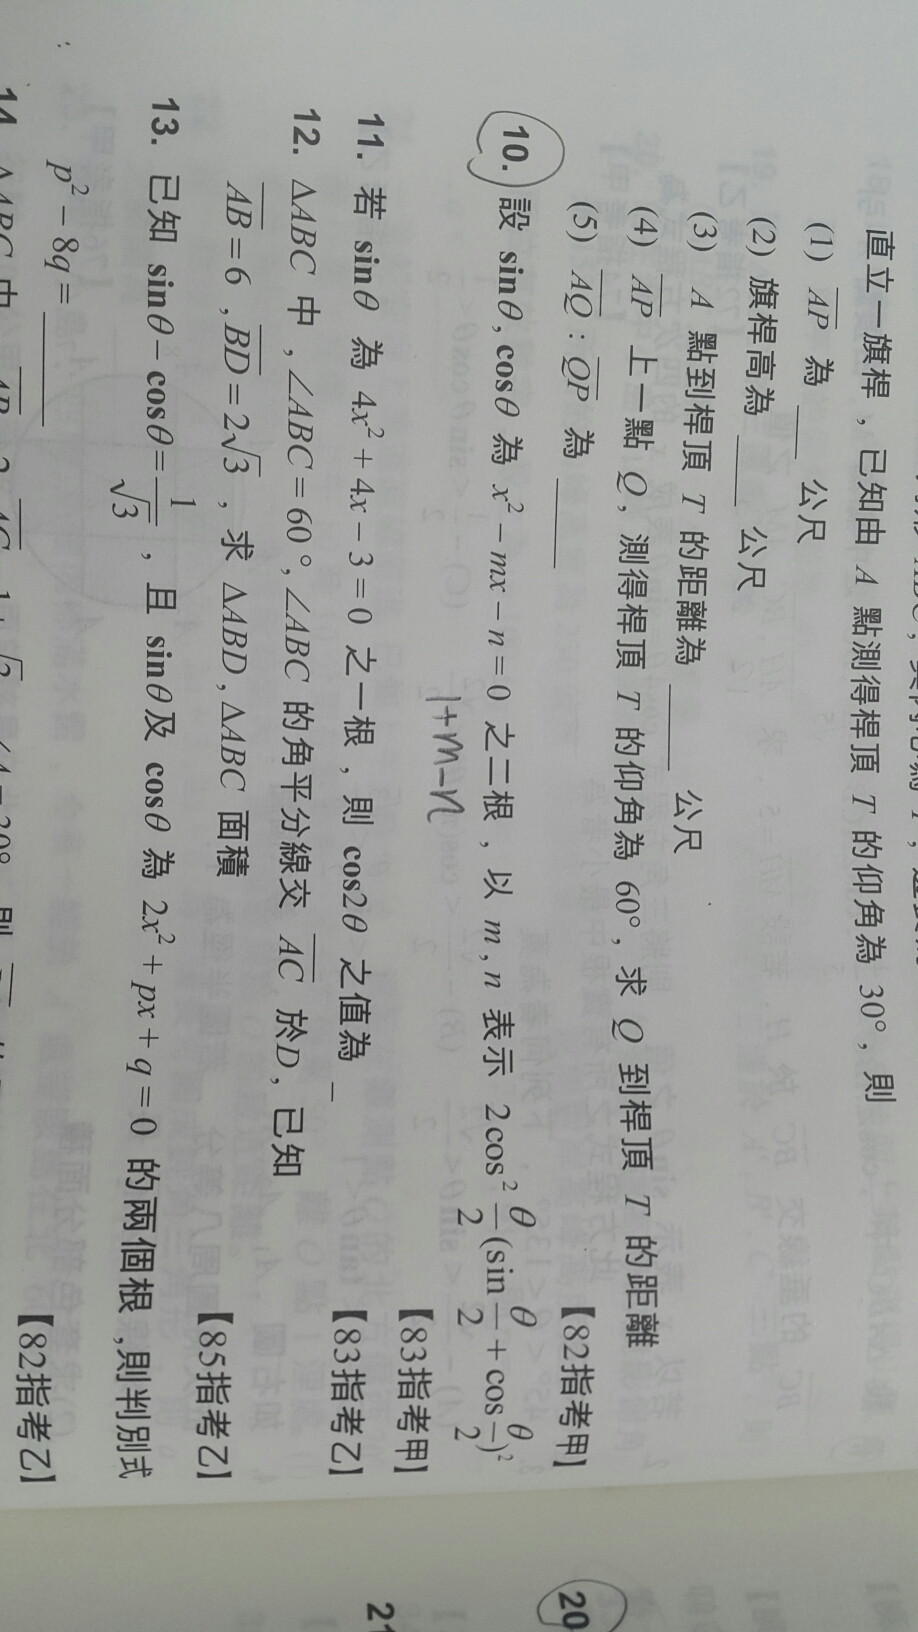 直立一旗桿，已知由 A 點測得桿頂 T 的仰角為 30°，則
(1) \overline{AP} 為 ____ 公尺
(2) 旗桿高為 ____ 公尺
(3) A 點到桿頂 T 的距離為 ____ 公尺
(4) \overline{AP} 上一點 Q，測得桿頂 T 的仰角為 60°，求 Q 到桿頂 T 的距離
(5) \overline{AQ} : \overline{QP} 為 ____ 【82指考甲】
10. 設 sinθ, cosθ 為 x² − mx − n = 0 之二根，以 m, n 表示 2cos² θ/2 (sin θ/2 + cos θ/2)²
1+m−n
【83指考甲】
11. 若 sinθ 為 4x² + 4x − 3 = 0 之一根，則 cos2θ 之值為 _ 【83指考乙】
12. ΔABC 中，∠ABC = 60°, ∠ABC 的角平分線交 \overline{AC} 於D, 已知
\overline{AB} = 6 , \overline{BD} = 2√3 , 求 ΔABD, ΔABC 面積 【85指考乙】
13. 已知 sinθ − cosθ = 1/√3 , 且 sinθ及 cosθ 為 2x² + px + q = 0 的兩個根 ,則判別式
p² − 8q = ____ 【82指考乙】
14.
20
21